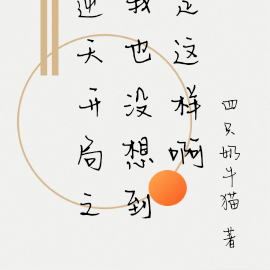 逆天开局之
我也没想到
是这样啊
四只奶牛猫 著